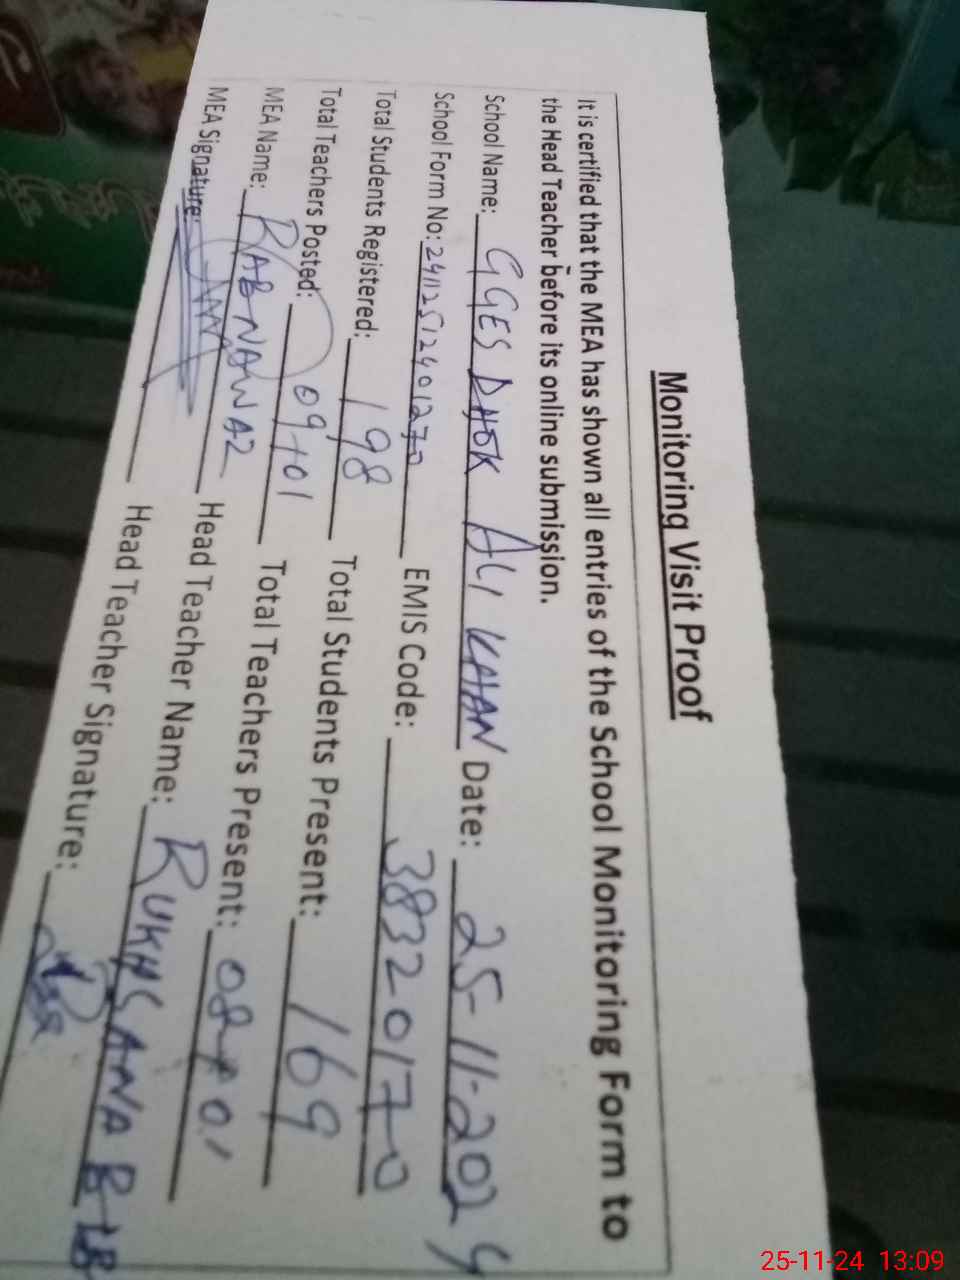 Monitoring Visit Proof
It is certified that the MEA has shown all entries of the School Monitoring Form to
the Head Teacher before its online submission.
School Name: GGES DHOK ALI KHAN Date: 25-11-2024
School Form No: 24112512401270 EMIS Code: 38320170
Total Students Registered: 198 Total Students Present: 169
Total Teachers Posted: 09+01 Total Teachers Present: 08+01
MEA Name: RAB NAWAZ Head Teacher Name: RUKHSANA BIBI
MEA Signature: Head Teacher Signature:
25-11-24 13:09